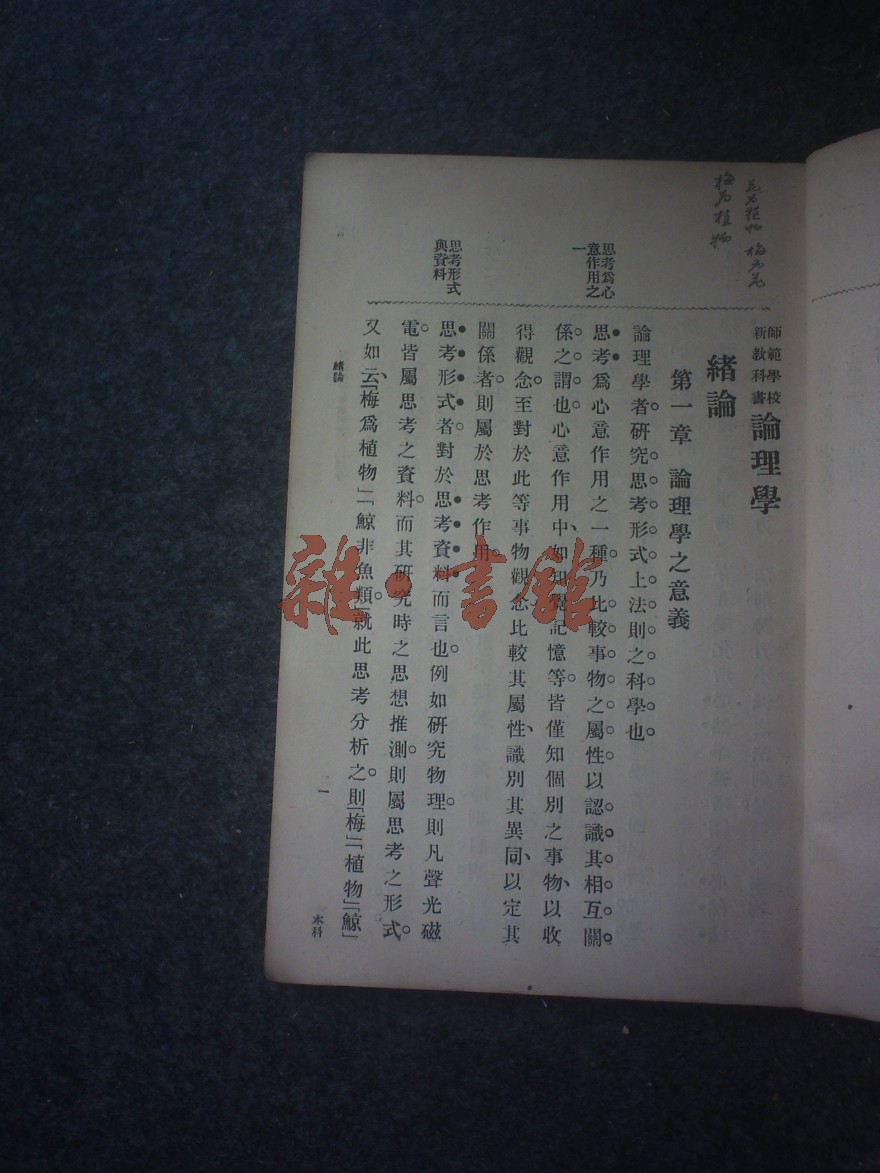 花为植物 梅为花
梅为植物
師範學校
新教科書
論理學
緒論
第一章 論理學之意義
思考爲心
意作用之
一
論理學者。硏究思考形式上法則之科學也。
思考爲心意作用之一種。乃比較事物之屬性以認識其相互關
係之謂也。心意作用中、如知覺記憶等。皆僅知個別之事物、以收
得觀念。至對於此等事物觀念比較其屬性、識別其異同、以定其
關係者。則屬於思考作用。
思考形式
與資料
思考形式者。對於思考資料而言也。例如硏究物理。則凡聲光磁
電。皆屬思考之資料。而其硏究時之思想推測。則屬思考之形式。
又如云、「梅爲植物」「鯨非魚類」。就此思考分析之。則「梅」「植物」「鯨」
緒論
一
本科
雜·書館